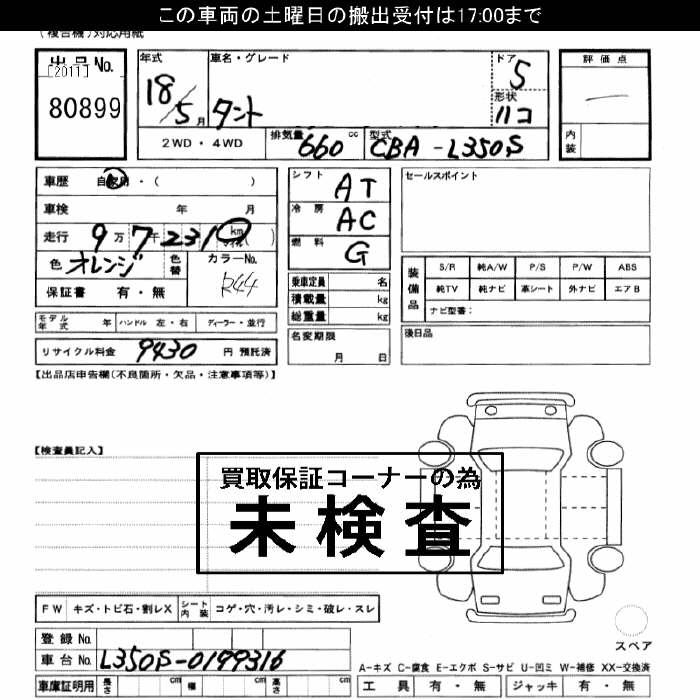 この車両の土曜日の搬出受付は17:00まで
(複合機)対応用紙
出品No.
[2011]
80899
年式
18/5月
車名・グレード
タント
ドア
5
形状
ハコ
評価点
—
内装
2WD・4WD
排気量
660 cc
型式
CBA-L350S
車歴 自家用・( )
車検 年 月
走行 9万7千231 km マイル( )
色 オレンジ
色替
カラーNo.
R44
保証書 有・無
シフト AT
冷房 AC
燃料 G
乗車定員 名
積載量 kg
総重量 kg
名変期限
月 日
セールスポイント
装備品
S/R 純A/W P/S P/W ABS
純TV 純ナビ 革シート 外ナビ エアB
ナビ型番:
後日品
モデル年式 年 ハンドル 左・右 ディーラー・並行
リサイクル料金 9430 円 預託済
【出品店申告欄(不良箇所・欠品・注意事項等)】
【検査員記入】
買取保証コーナーの為
未検査
FW キズ・トビ石・割レX シート内装 コゲ・穴・汚レ・シミ・破レ・スレ
登録No.
車台No. L350S-0199316
車庫証明用 長さ cm 幅 cm 高さ cm
スペア
A-キズ C-腐食 E-エクボ S-サビ U-凹ミ W-補修 XX-交換済
工具 有・無 ジャッキ 有・無